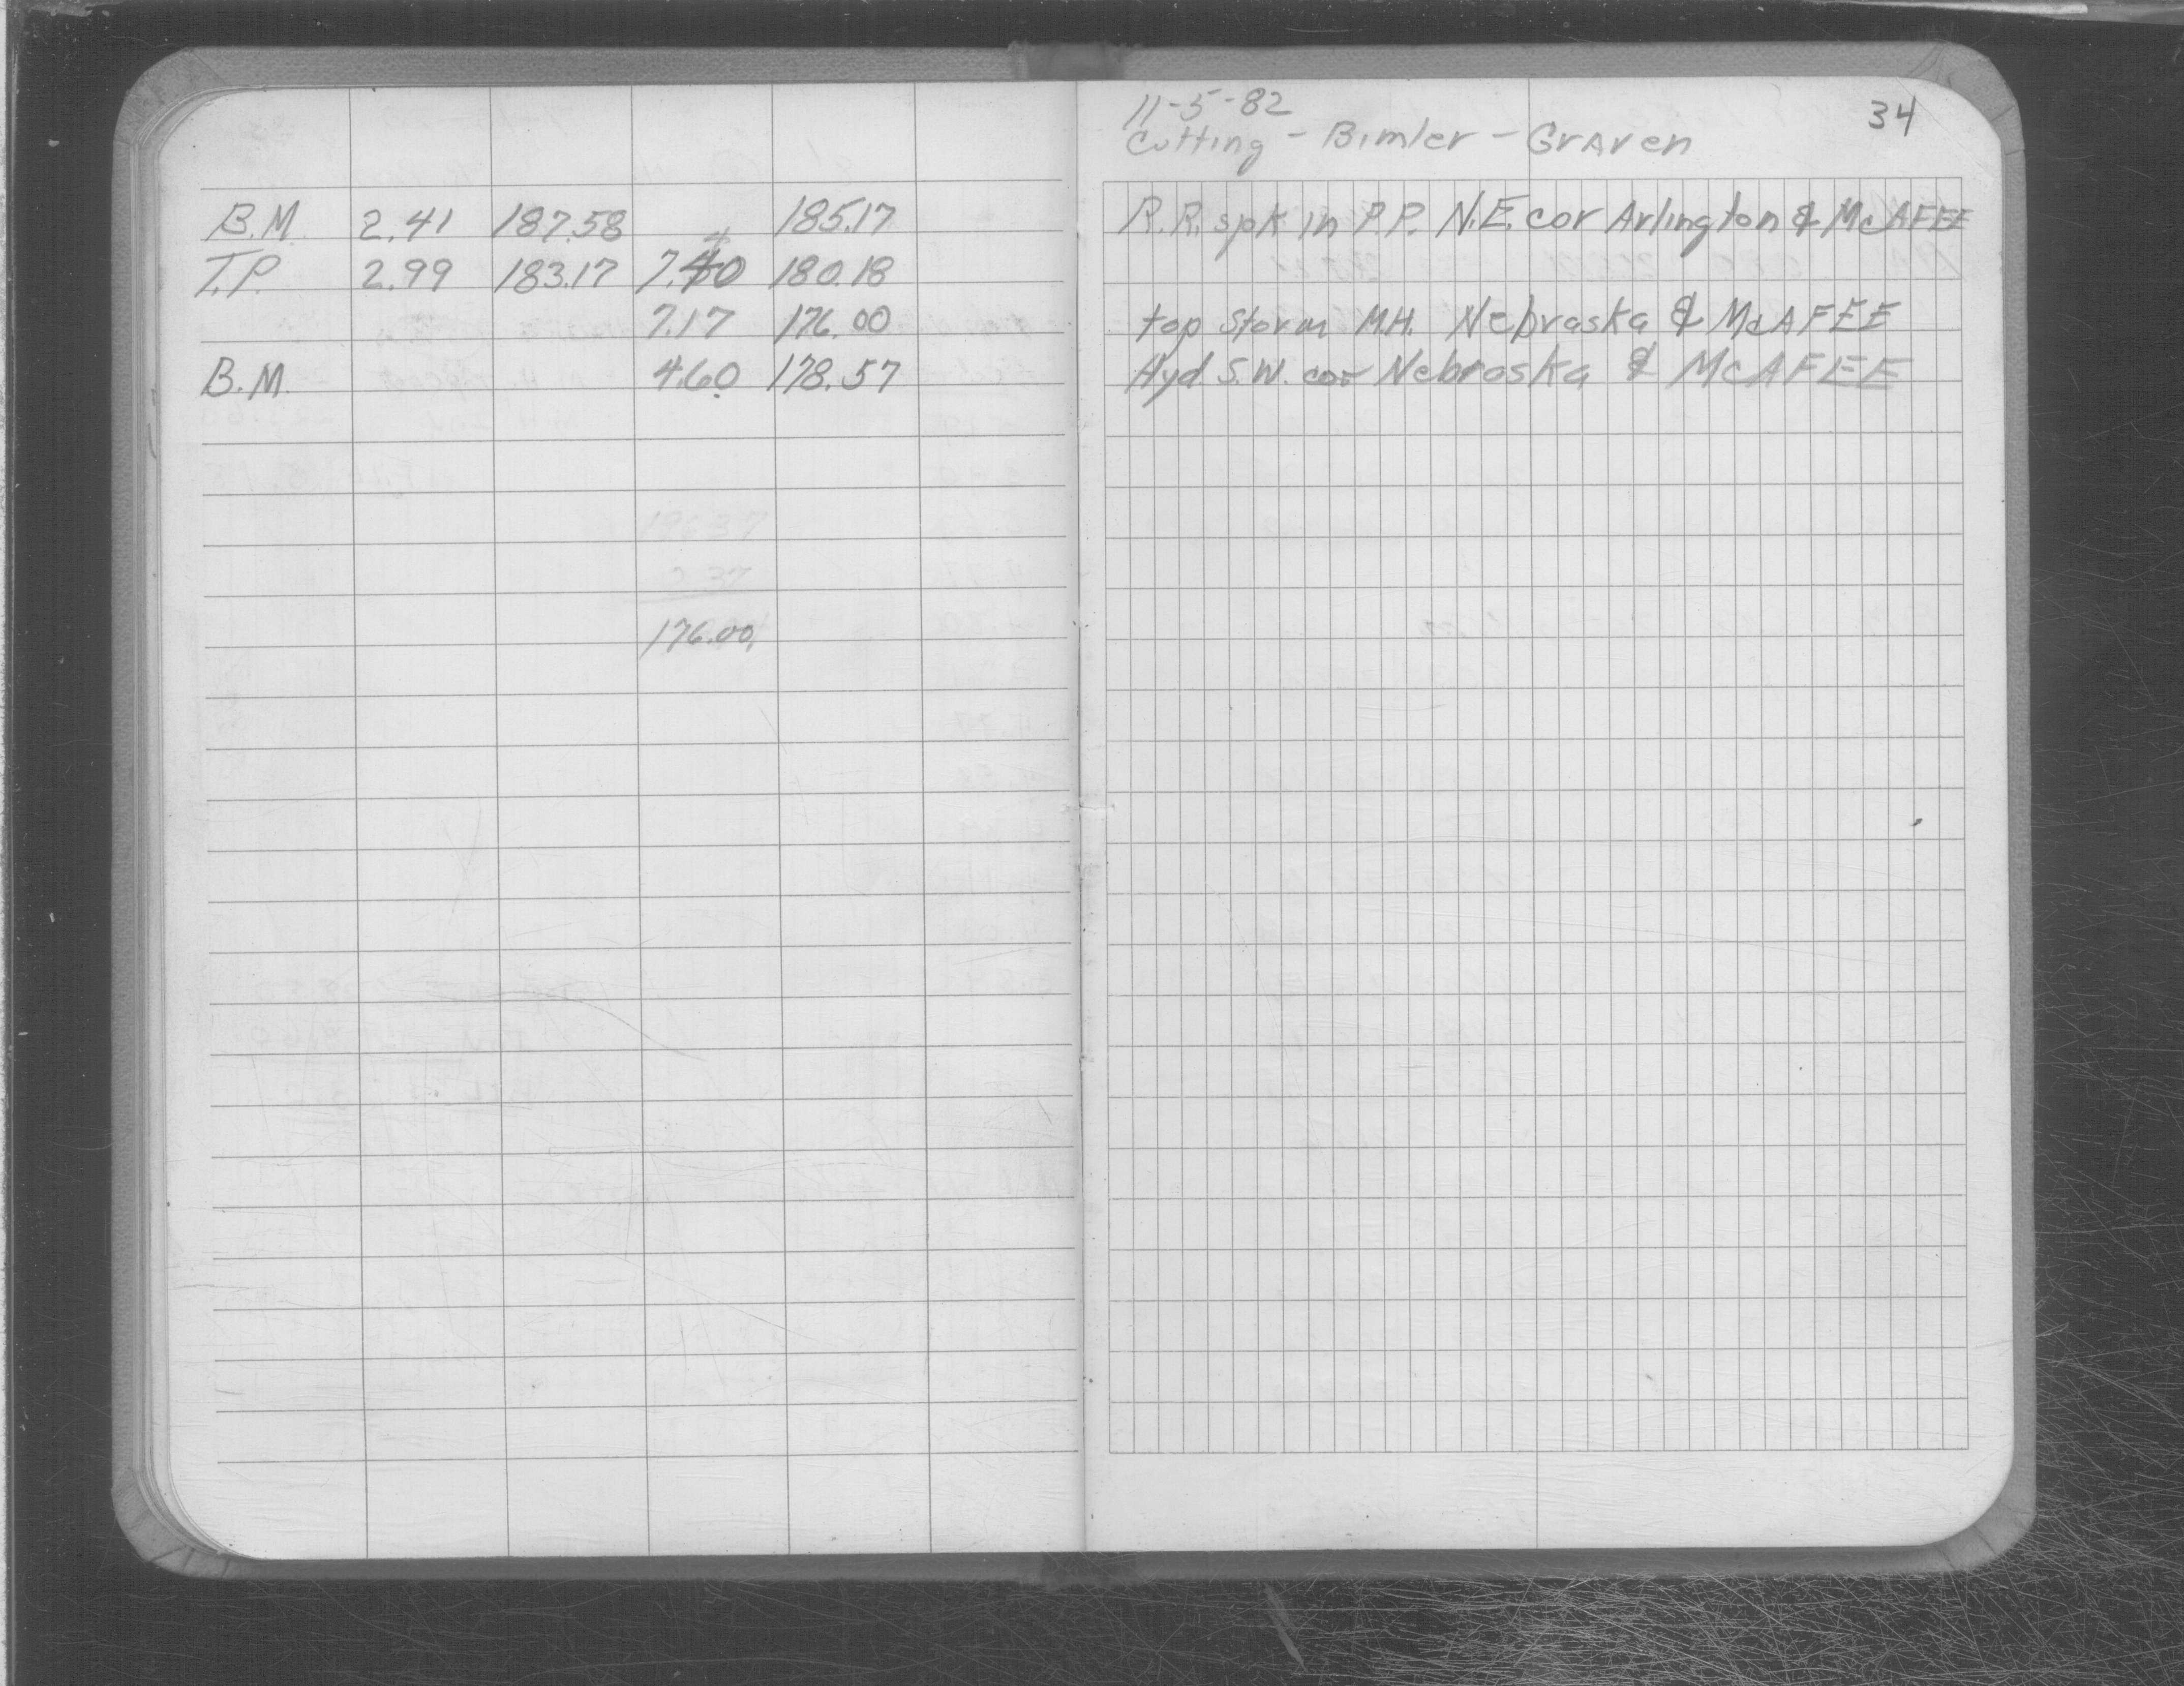 11-5-82
Cutting - Bimler - Graven
34
B.M. 2.41 187.58 185.17 R.R. spk in P.P. N.E. cor Arlington & McAFEE
T.P. 2.99 183.17 7.40 180.18
7.17 176.00 top Storm M.H. Nebraska & McAFEE
B.M. 4.60 178.57 Hyd S.W. cor Nebraska & McAFEE
176.00